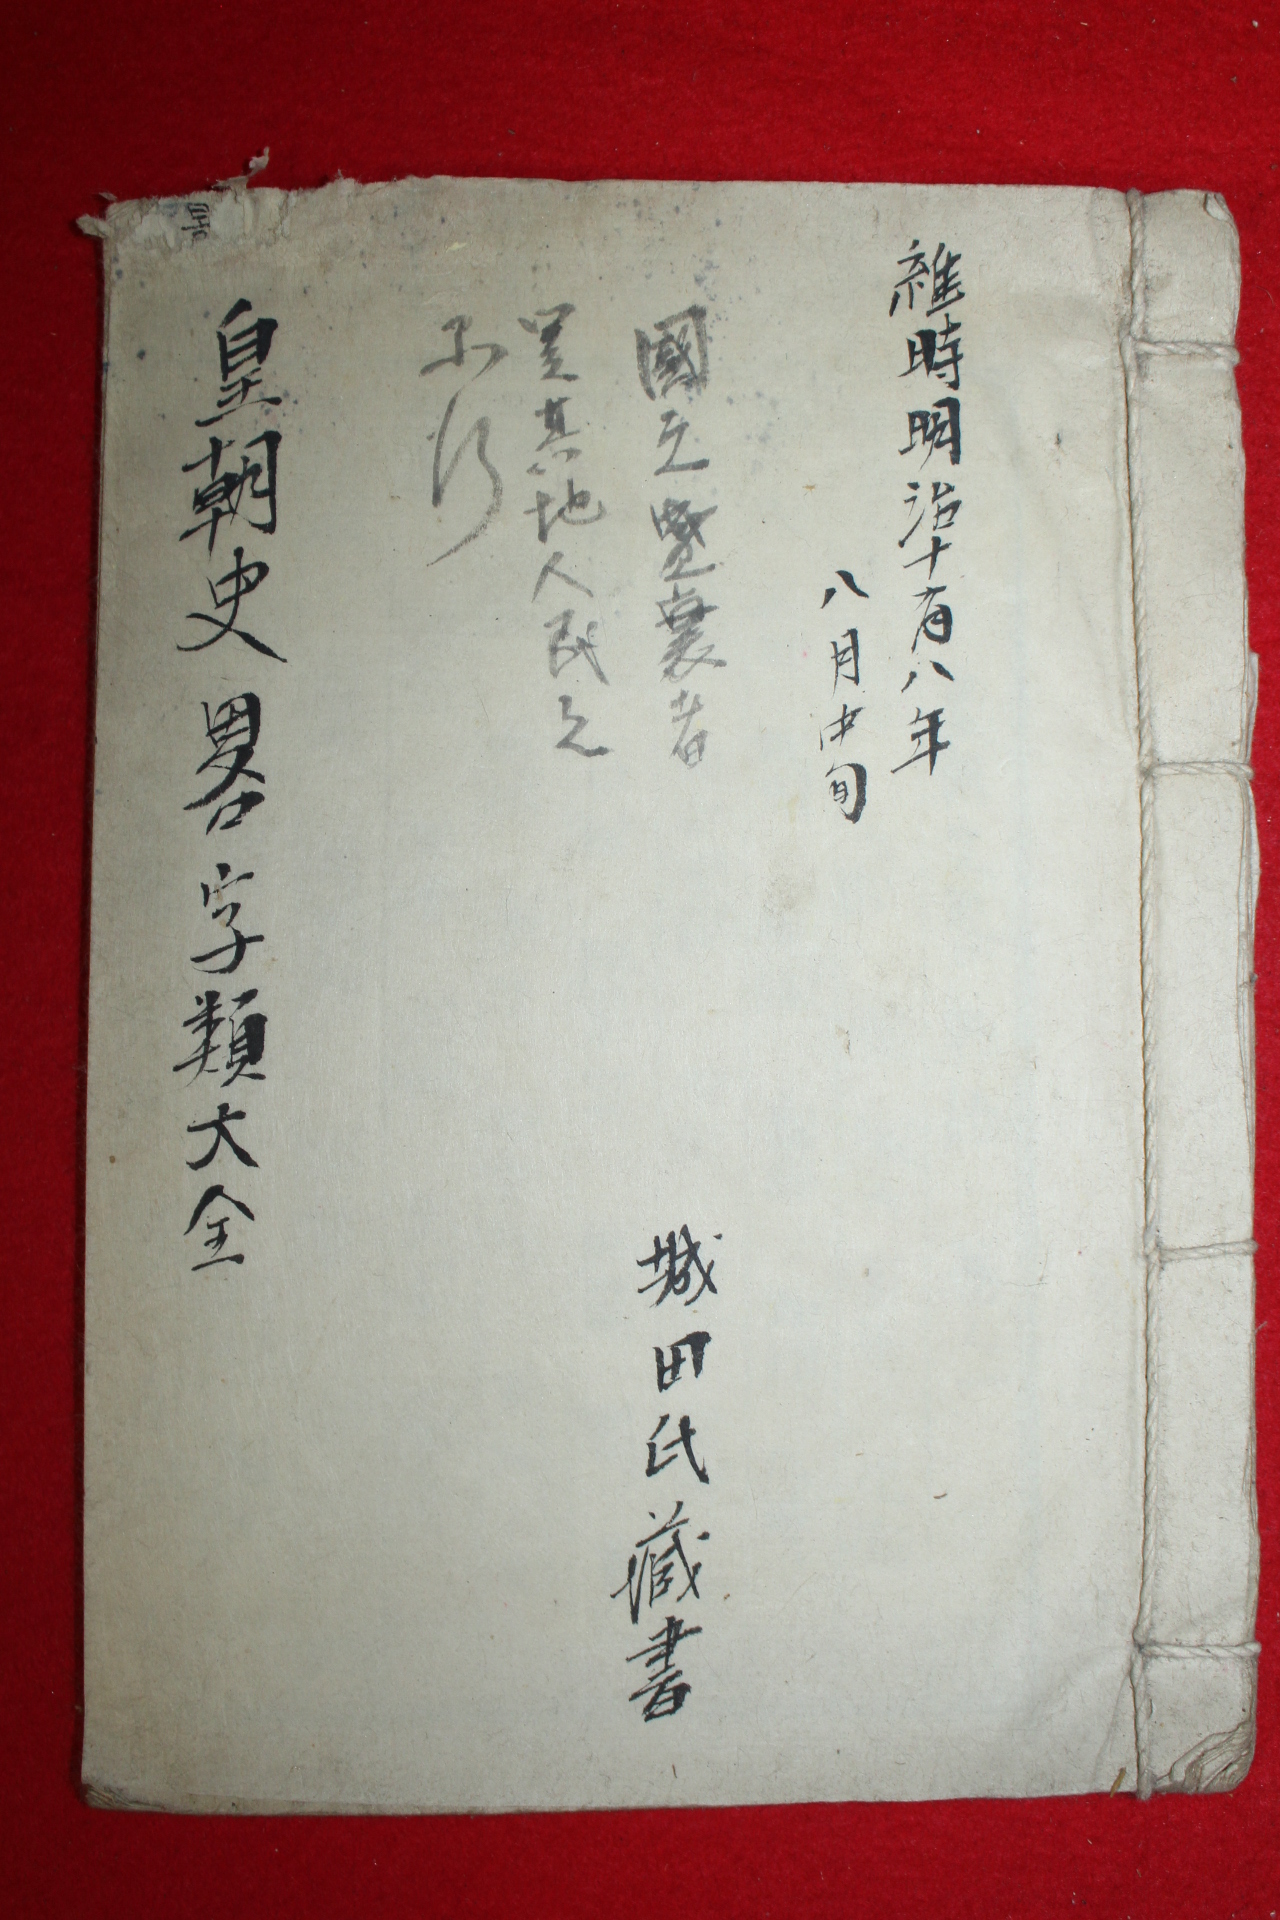 維時明治十有八年
八月中旬
國之盛衰者
其地人民之
城田氏藏書
皇朝史畧字類大全